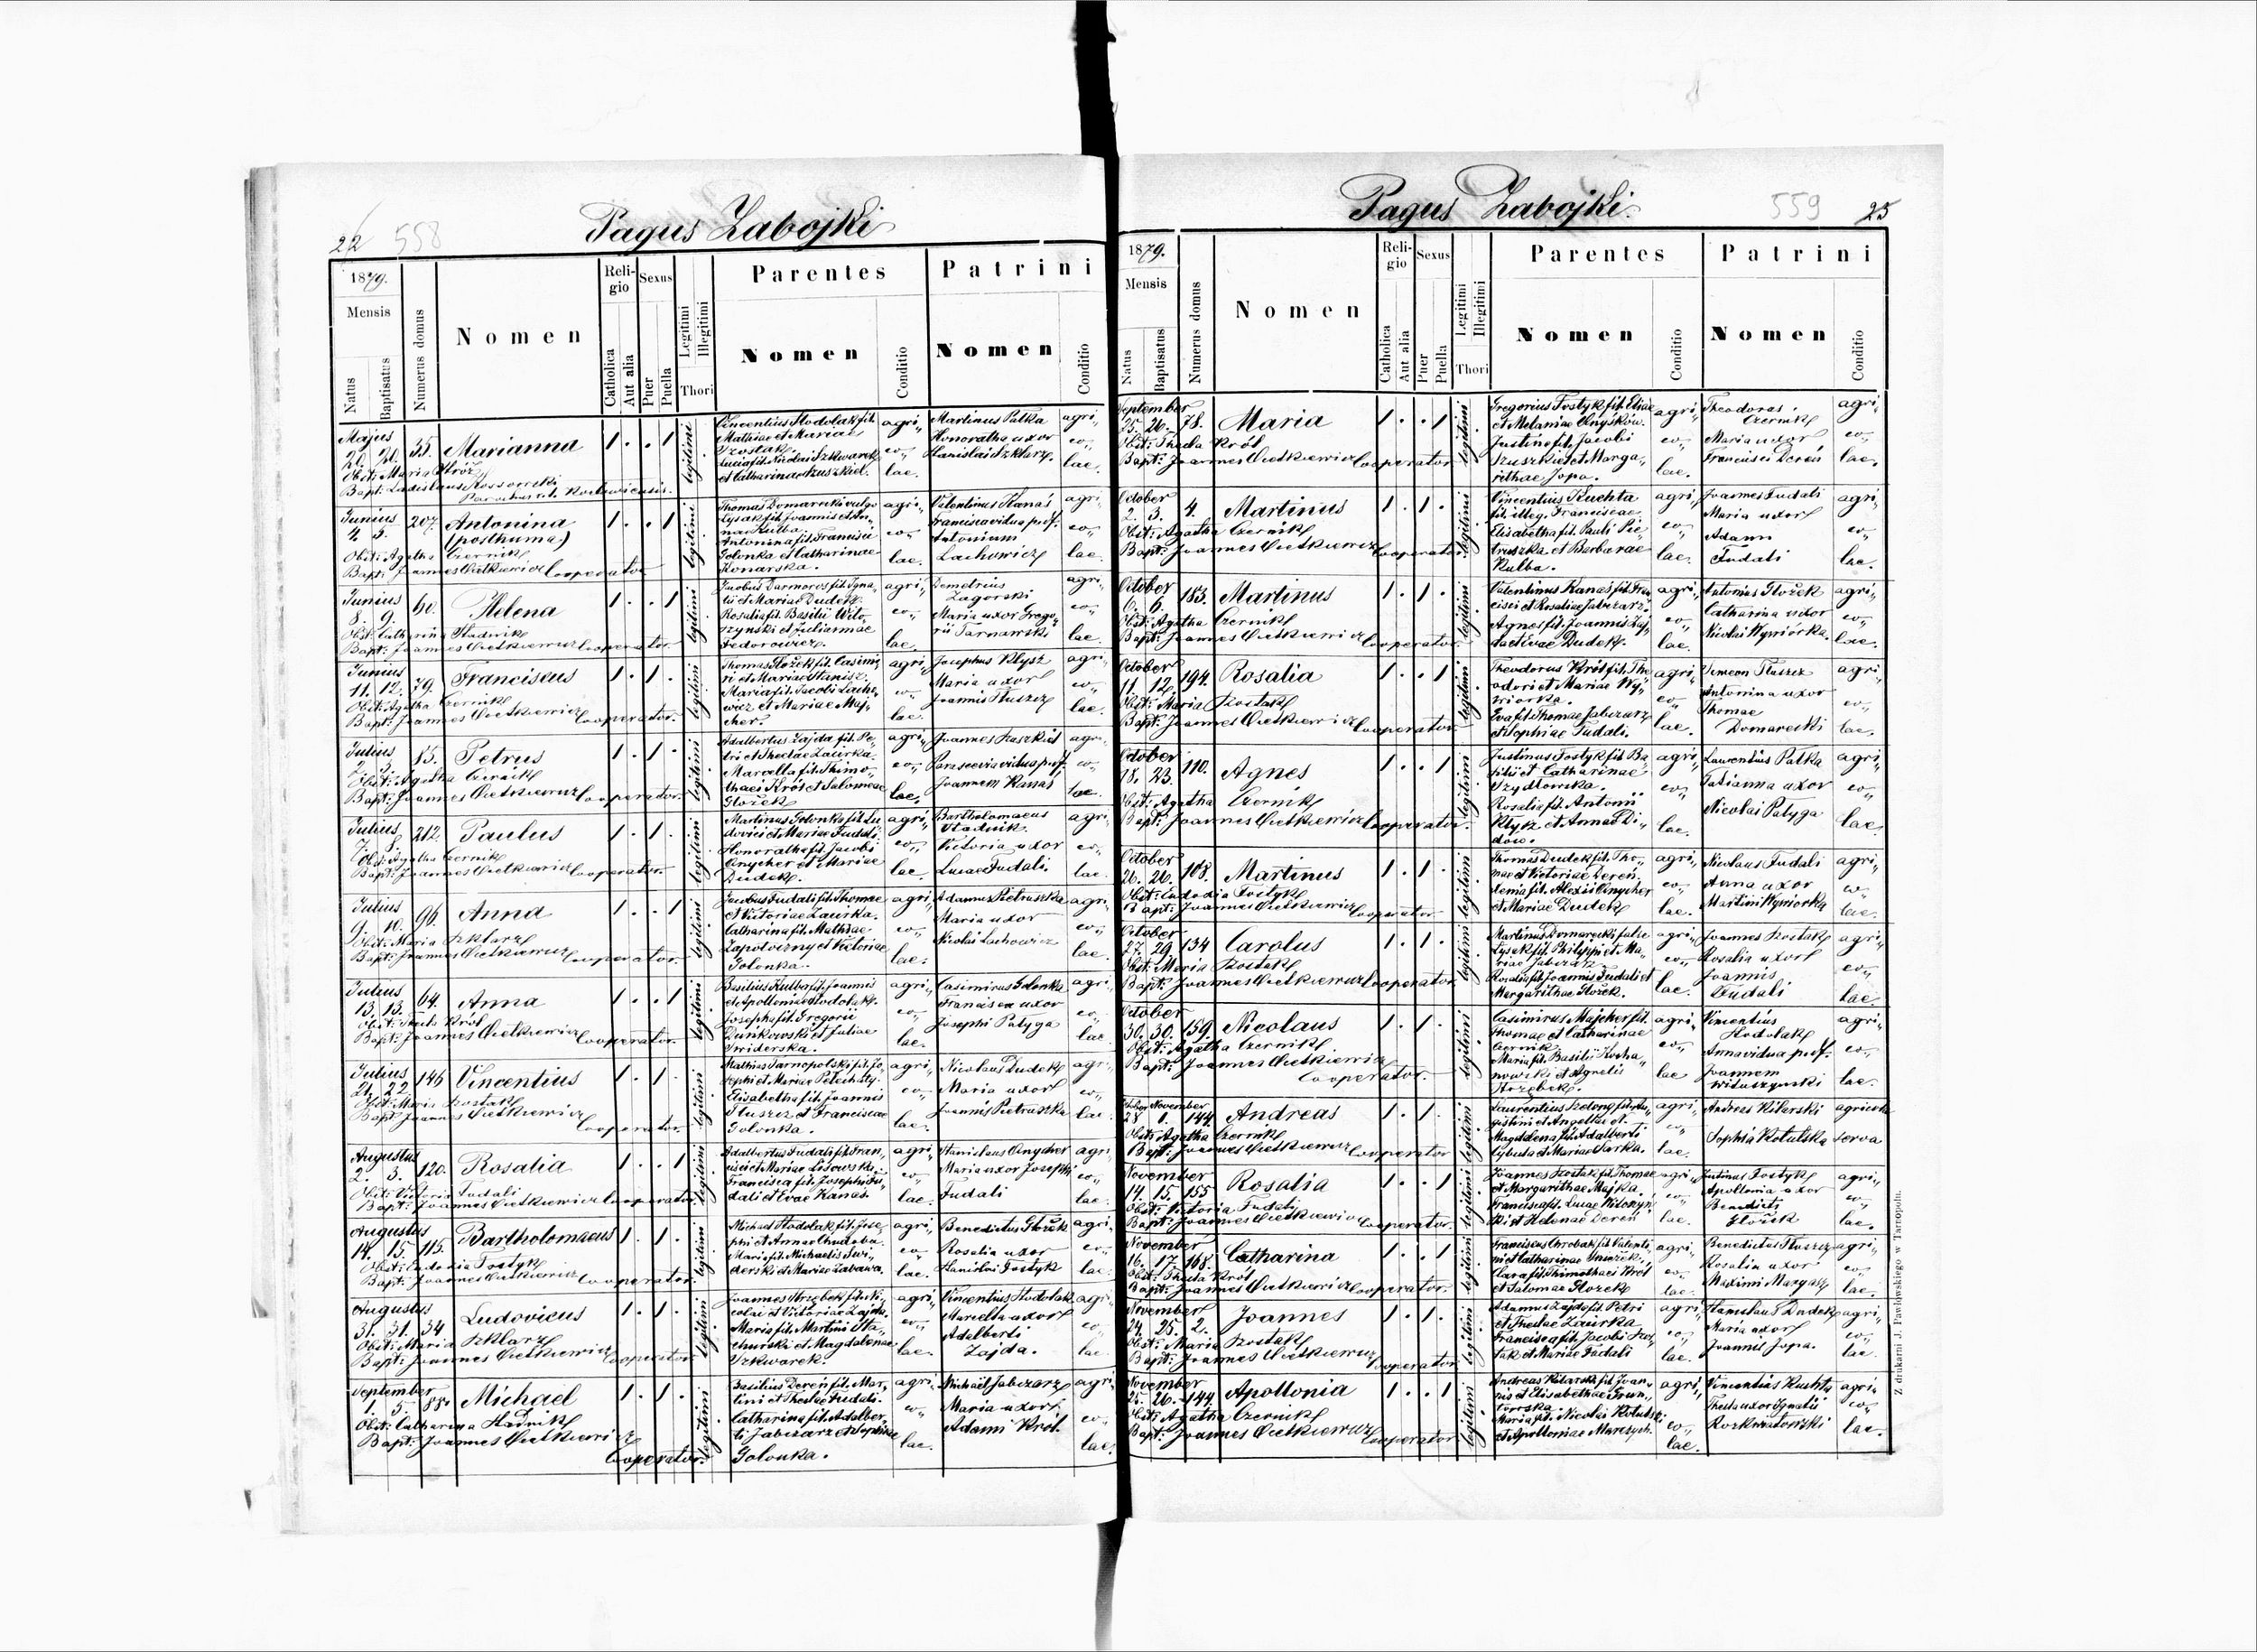 22 558
Pagus Zabojki
1879.
Mensis
Natus
Baptisatus
Numerus domus
Nomen
Religio
Catholica
Aut alia
Sexus
Puer
Puella
Legitimi
Illegitimi
Thori
Parentes
Nomen
Conditio
Patrini
Nomen
Conditio
Majus
20. 20. 35. Marianna 1 . . 1 legitimi
Obst: Maria
Bapt: Ladislaus
Vincentius Hodolak fil.
Mathiae et Mariae
Szostak.
Lucia fil. Nicolai Szkwarek
et Catharinae Szuszkiel.
agri„
co„
lae.
Martinus Patka
Honoratha uxor
Stanislai Szklarz.
agri„
co„
lae.
Junius
4. 5. 207. Antonina 1 . . 1 legitimi
(posthuma)
Obst: Agatha Czernik
Bapt: Joannes Cooperator
Thomas Domarecki vulgo
Lysak fil. Joannis et An„
nae Kulba.
Antonina fil. Francisci
Golonka et Catharinae
Konarska.
agri„
co„
lae.
Valentinus Kanas
Francisca vidua post
Antonium
Lachowicz
agri
co„
lae.
Junius
8. 9. 60. Helena 1 . . 1 legitimi
Obst: Catharina Hladnik
Bapt: Joannes Cooperator.
et Mariae Dudek.
Rosalia fil. Basilii Wito„
szynski et Juliannae
Fedorowicz.
agri„
co„
lae
Demetrius
Zagorski
Maria uxor Grego„
rii Tarnawski
agri„
co„
lae.
Junius
11. 12. 79. Franciscus 1 . 1 . legitimi
Obst: Agatha Czernik
Bapt: Joannes Cooperator.
Maria fil. Jacobi Lacho„
wicz et Mariae Maj„
cher.
agri„
co„
lae.
Josephus Klysz
Maria uxor
Joannis Tluszcz
agri„
co„
lae.
Julius
2. 3. 15. Petrus 1 . 1 . legitimi
Obst: Agatha Czernik
Bapt: Joannes Cooperator.
Adalbertus Zajda fil. Pe„
tri et Theclae Zaurka.
Marcella fil. Thimo„
thaei Król et Salomeae
Glożek
agri„
co„
lae.
Joannes Szuszkiel
Joannem Kanas
agri„
co„
lae.
Julius
7. 8. 212. Paulus 1 . 1 . legitimi
Obst: Agatha Czernik
Bapt: Joannes Cooperator.
Martinus Golonka fil. Lu„
dovici et Mariae Fudali.
Honoratha fil. Jacobi
Onycher et Mariae
Dudek.
agri„
co„
lae.
Bartholomaeus
Hladnik.
Victoria uxor
Lucae Fudali.
agri„
co„
lae.
Julius
9. 10. 96. Anna 1 . . 1 legitimi
Obst: Maria Szklarz
Bapt: Joannes Cooperator.
Jacobus Fudali fil. Thomae
et Victoriae Zaurka.
Catharina fil. Mathiae
Zapotoczny et Victoriae
Golonka.
agri„
co„
lae.
Adamus Pietruszka
Maria uxor
Nicolai Lachowicz
agri„
co„
lae.
Julius
13. 13. 64. Anna 1 . . 1 legitimi
Obst: Thecla Król
Bapt: Joannes Cooperator.
Basilius Kulba fil. Joannis
et Apolloniae Hodolak.
Josepha fil. Gregorii
Dunkowski et Juliae
Swiderska.
agri„
co„
lae.
Casimirus Golonka
Francisca uxor
Josephi Patyga
agri„
co„
lae.
Julius
21. 22. 146 Vincentius 1 . 1 . legitimi
Obst: Maria Szostak
Bapt: Joannes Cooperator.
Mathias Tarnopolski fil. Jo„
Elisabetha fil. Joannis
Tluszcz et Franciscae
Golonka.
agri„
co„
lae.
Nicolaus Dudek
Maria uxor
Joannis Pietruszka
agri„
co„
lae.
Augustus
2. 3. 120. Rosalia 1 . . 1 legitimi
Obst: Victoria Fudali
Bapt: Joannes Cooperator.
Adalbertus Fudali fil. Fran„
cisci et Mariae Lisowski.
Francisca fil. Josephi Fu„
dali et Evae Kanas.
agri„
co„
lae.
Stanislaus Onycher
Maria uxor Josephi
Fudali
agri„
co„
lae.
Augustus
14. 15. 115. Bartholomaeus 1 . 1 . legitimi
Obst: Eudoxia Tostyk
Bapt: Joannes Cooperator.
Michael Hodolak fil. Jose„
phi et Annae Chudoba.
Maria fil. Michaelis Swi„
derski et Mariae Zabawa.
agri„
co„
lae.
Benedictus Glożek
Rosalia uxor
Stanislai Tostyk
agri„
co„
lae.
Augustus
31. 31. 34. Ludovicus 1 . 1 . legitimi
Obst: Maria Szklarz
Bapt: Joannes Cooperator
Joannes Strzębek fil. Ni„
colai et Victoriae Zajda.
Maria fil. Martini Sta„
churski et Magdalenae
Szkwarek.
agri„
co„
lae.
Vincentius Hodolak
Marcella uxor
Adalberti
Zajda.
agri„
co„
lae.
September
1. 5. 88. Michael 1 . 1 . legitimi
Obst: Catharina Hladnik
Bapt: Joannes
Cooperator.
Basilius Dereń fil. Mar„
tini et Theclae Fudali.
Catharina fil. Adalber„
ti Jabczarz et Sophiae
Golonka.
agri„
co„
lae.
Michael Jabczarz
Maria uxor
Adami Król.
agri„
co„
lae.
Pagus Zabojki.
559 23
1879.
Mensis
Natus
Baptisatus
Numerus domus
Nomen
Religio
Catholica
Aut alia
Sexus
Puer
Puella
Legitimi
Illegitimi
Thori
Parentes
Nomen
Conditio
Patrini
Nomen
Conditio
September
25. 26. 78. Maria 1 . . 1 legitimi
Obst: Thecla Król
Bapt: Joannes Cooperator
Gregorius Tostyk fil. Eliae
et Melaniae Onyśków.
Justina fil. Jacobi
Szuszkiel et Marga„
rithae Jopa.
agri„
co„
lae.
Theodorus
Czernik
Maria uxor
Francisci Dereń
agri„
co„
lae.
October
2. 3. 4. Martinus 1 . 1 . legitimi
Obst: Agatha Czernik
Bapt: Joannes Cooperator
Vincentius Kuchta
fil. illeg. Franciscae.
Elisabetha fil. Pauli Pie„
truszka et Barbarae
Kulba.
agri„
co„
lae.
Joannes Fudali
Maria uxor
Adami
Fudali
agri„
co„
lae.
October
6. 6. 183. Martinus 1 . 1 . legitimi
Obst: Agatha Czernik
Bapt: Joannes Cooperator.
Valentinus Kanas fil. Fran„
cisci et Rosaliae Jabczarz.
Agnes fil. Joannis Zaj„
da et Evae Dudek.
agri„
co„
lae.
Antonius Glożek
Catharina uxor
Nicolai Wywiórka.
agri„
co„
lae.
October
11. 12. 194. Rosalia 1 . . 1 legitimi
Obst: Maria Szostak
Bapt: Joannes Cooperator.
Theodorus Król fil. The„
odori et Mariae Wy„
wiorka.
Eva fil. Thomae Jabczarz
et Sophiae Fudali.
agri„
co„
lae.
Simeon Tluszcz
Antonina uxor
Thomae
Domarecki
agri„
co„
lae.
October
18. 23. 110. Agnes 1 . . 1 legitimi
Obst: Agatha Czernik
Bapt: Joannes Cooperator.
Justinus Tostyk fil. Ba„
silii et Catharinae
Szydlowska.
Rosalia fil. Antonii
Klysz et Annae Di„
dow.
agri„
co„
lae.
Laurentius Patka
Tatianna uxor
Nicolai Patyga
agri„
co„
lae
October
26. 26. 108. Martinus 1 . 1 . legitimi
Obst: Eudoxia Tostyk
Bapt: Joannes Cooperator.
Thomas Dudek fil. Tho„
mae et Victoriae Dereń.
fil. Alexii Onycher
et Mariae Dudek
agri„
co„
lae.
Nicolaus Fudali
Anna uxor
Martini Wywiorka
agri„
co„
lae.
October
27. 29. 134 Carolus 1 . 1 . legitimi
Obst: Maria Szostak
Bapt: Joannes Cooperator.
Martinus Domarecki
Lysak fil. Philippi et Ma„
riae Jabczarz.
Rosalia fil. Joannis Fudali et
Margarithae Glożek.
agri„
co„
lae.
Joannes Szostak
Rosalia uxor
Joannis
Fudali
agri„
co„
lae
October
30. 30. 159. Nicolaus 1 . 1 . legitimi
Obst: Agatha Czernik
Bapt: Joannes
Cooperator.
Casimirus Majcher fil.
Thomae et Catharinae
Czernik.
Maria fil. Basilii Kocha„
nowski et Agnetis
Strzębek.
agri„
co„
lae
Vincentius
Hodolak
Anna vidua post
Joannem
Wituszynski
agri„
co„
lae.
October November
28 1. 144. Andreas 1 . 1 . legitimi
Obst: Agatha Czernik
Bapt: Joannes Cooperator
Magdalena fil. Adalberti
Cybula et Mariae Barka.
agri„
co„
lae.
Andreas Kitarski
Sophia Kolulska
agricola
serva
November
14. 15. 155 Rosalia 1 . . 1 legitimi
Obst: Victoria Fudali
Bapt: Joannes Cooperator.
Joannes Szostak fil. Thomae
et Margarithae Majka.
Francisca fil. Lucae
et Helenae Dereń
agri„
co„
lae.
Justinus Tostyk
Apollonia uxor
Benedicti
Glożek
agri„
co„
lae.
November
16. 17. 168. Catharina 1 . . 1 legitimi
Obst: Thecla Król
Bapt: Joannes Cooperator.
Franciscus Chrobak fil. Valenti„
ni et Catharinae
Clara fil. Thimothaei Król
et Salomae Glożek
agri„
co„
lae.
Benedictus Tluszcz
Rosalia uxor
Maximi Mazgaj
agri„
co„
lae.
November
24. 25. 2. Joannes 1 . 1 . legitimi
Obst: Maria Szostak
Bapt: Joannes Cooperator.
Adamus Zajda fil. Petri
et Theclae Zaurka
Francisca fil. Jacobi Szos„
tak et Mariae Fudali
agri„
co„
lae.
Stanislaus Dudek
Maria uxor
Joannis Jopa.
agri„
co„
lae.
November
25. 26. 144. Apollonia 1 . . 1 legitimi
Obst: Agatha Czernik
Bapt: Joannes Cooperator.
Andreas Kitarski fil. Joan„
nis et Elisabethae
Maria fil. Nicolai Kolulski
et Apolloniae
agri„
co„
lae.
Vincentius Kuchta
Thecla uxor Ignatii
agri„
co„
lae.
Z drukarni J. Pawłowskiego w Tarnopolu.